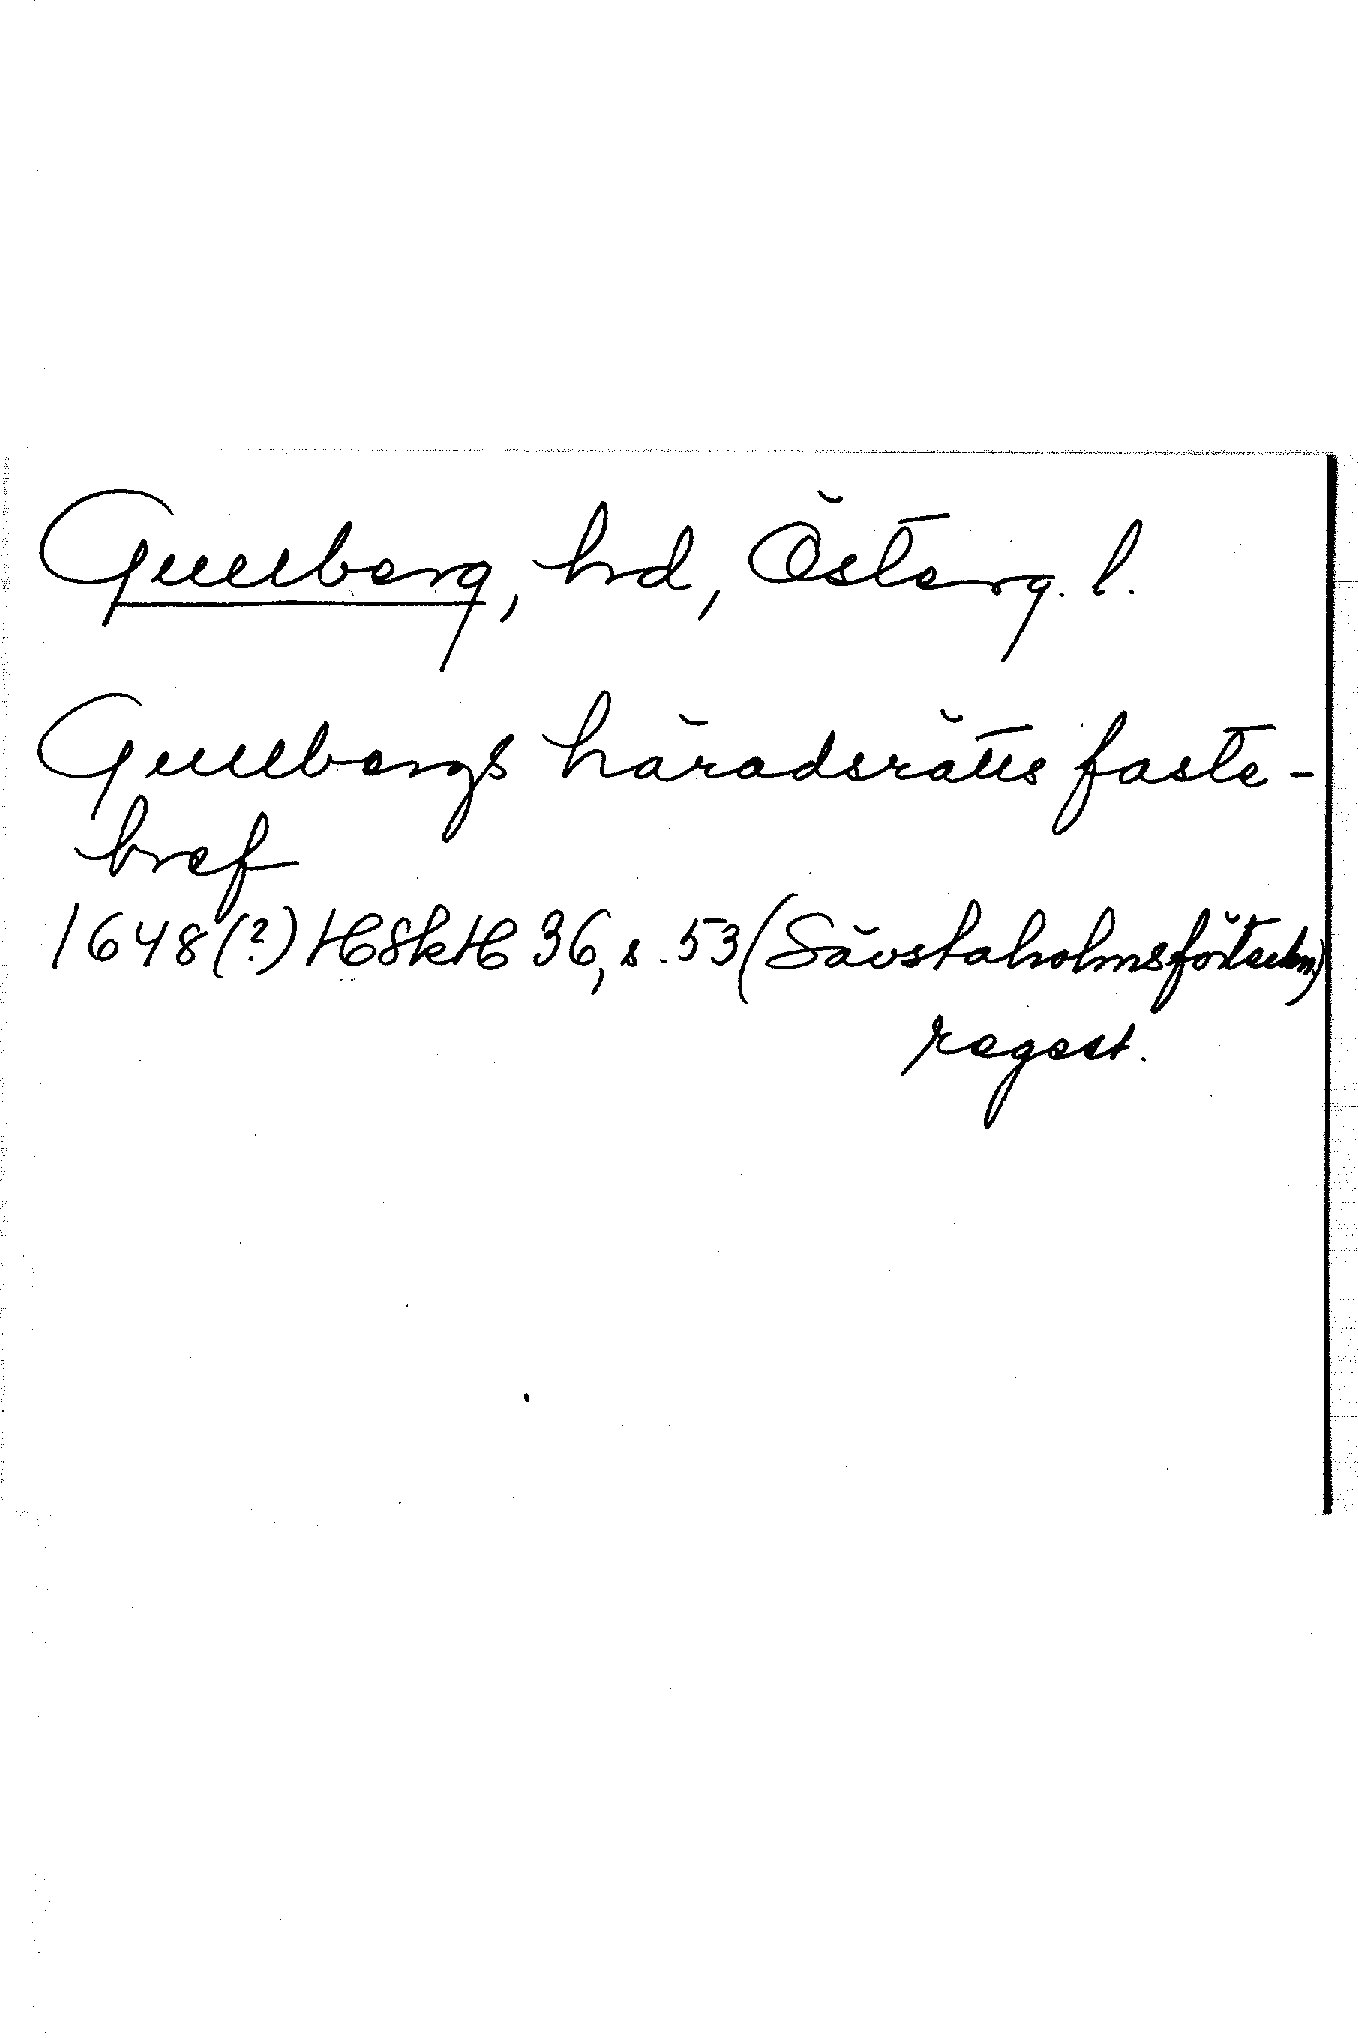 Gullberg, hrd, Österg. l.
Gullbergs häradsrätts faste-
bref
1648(?) HSkH 36, s. 53 (Sävstaholmsförteckn.)
regest.